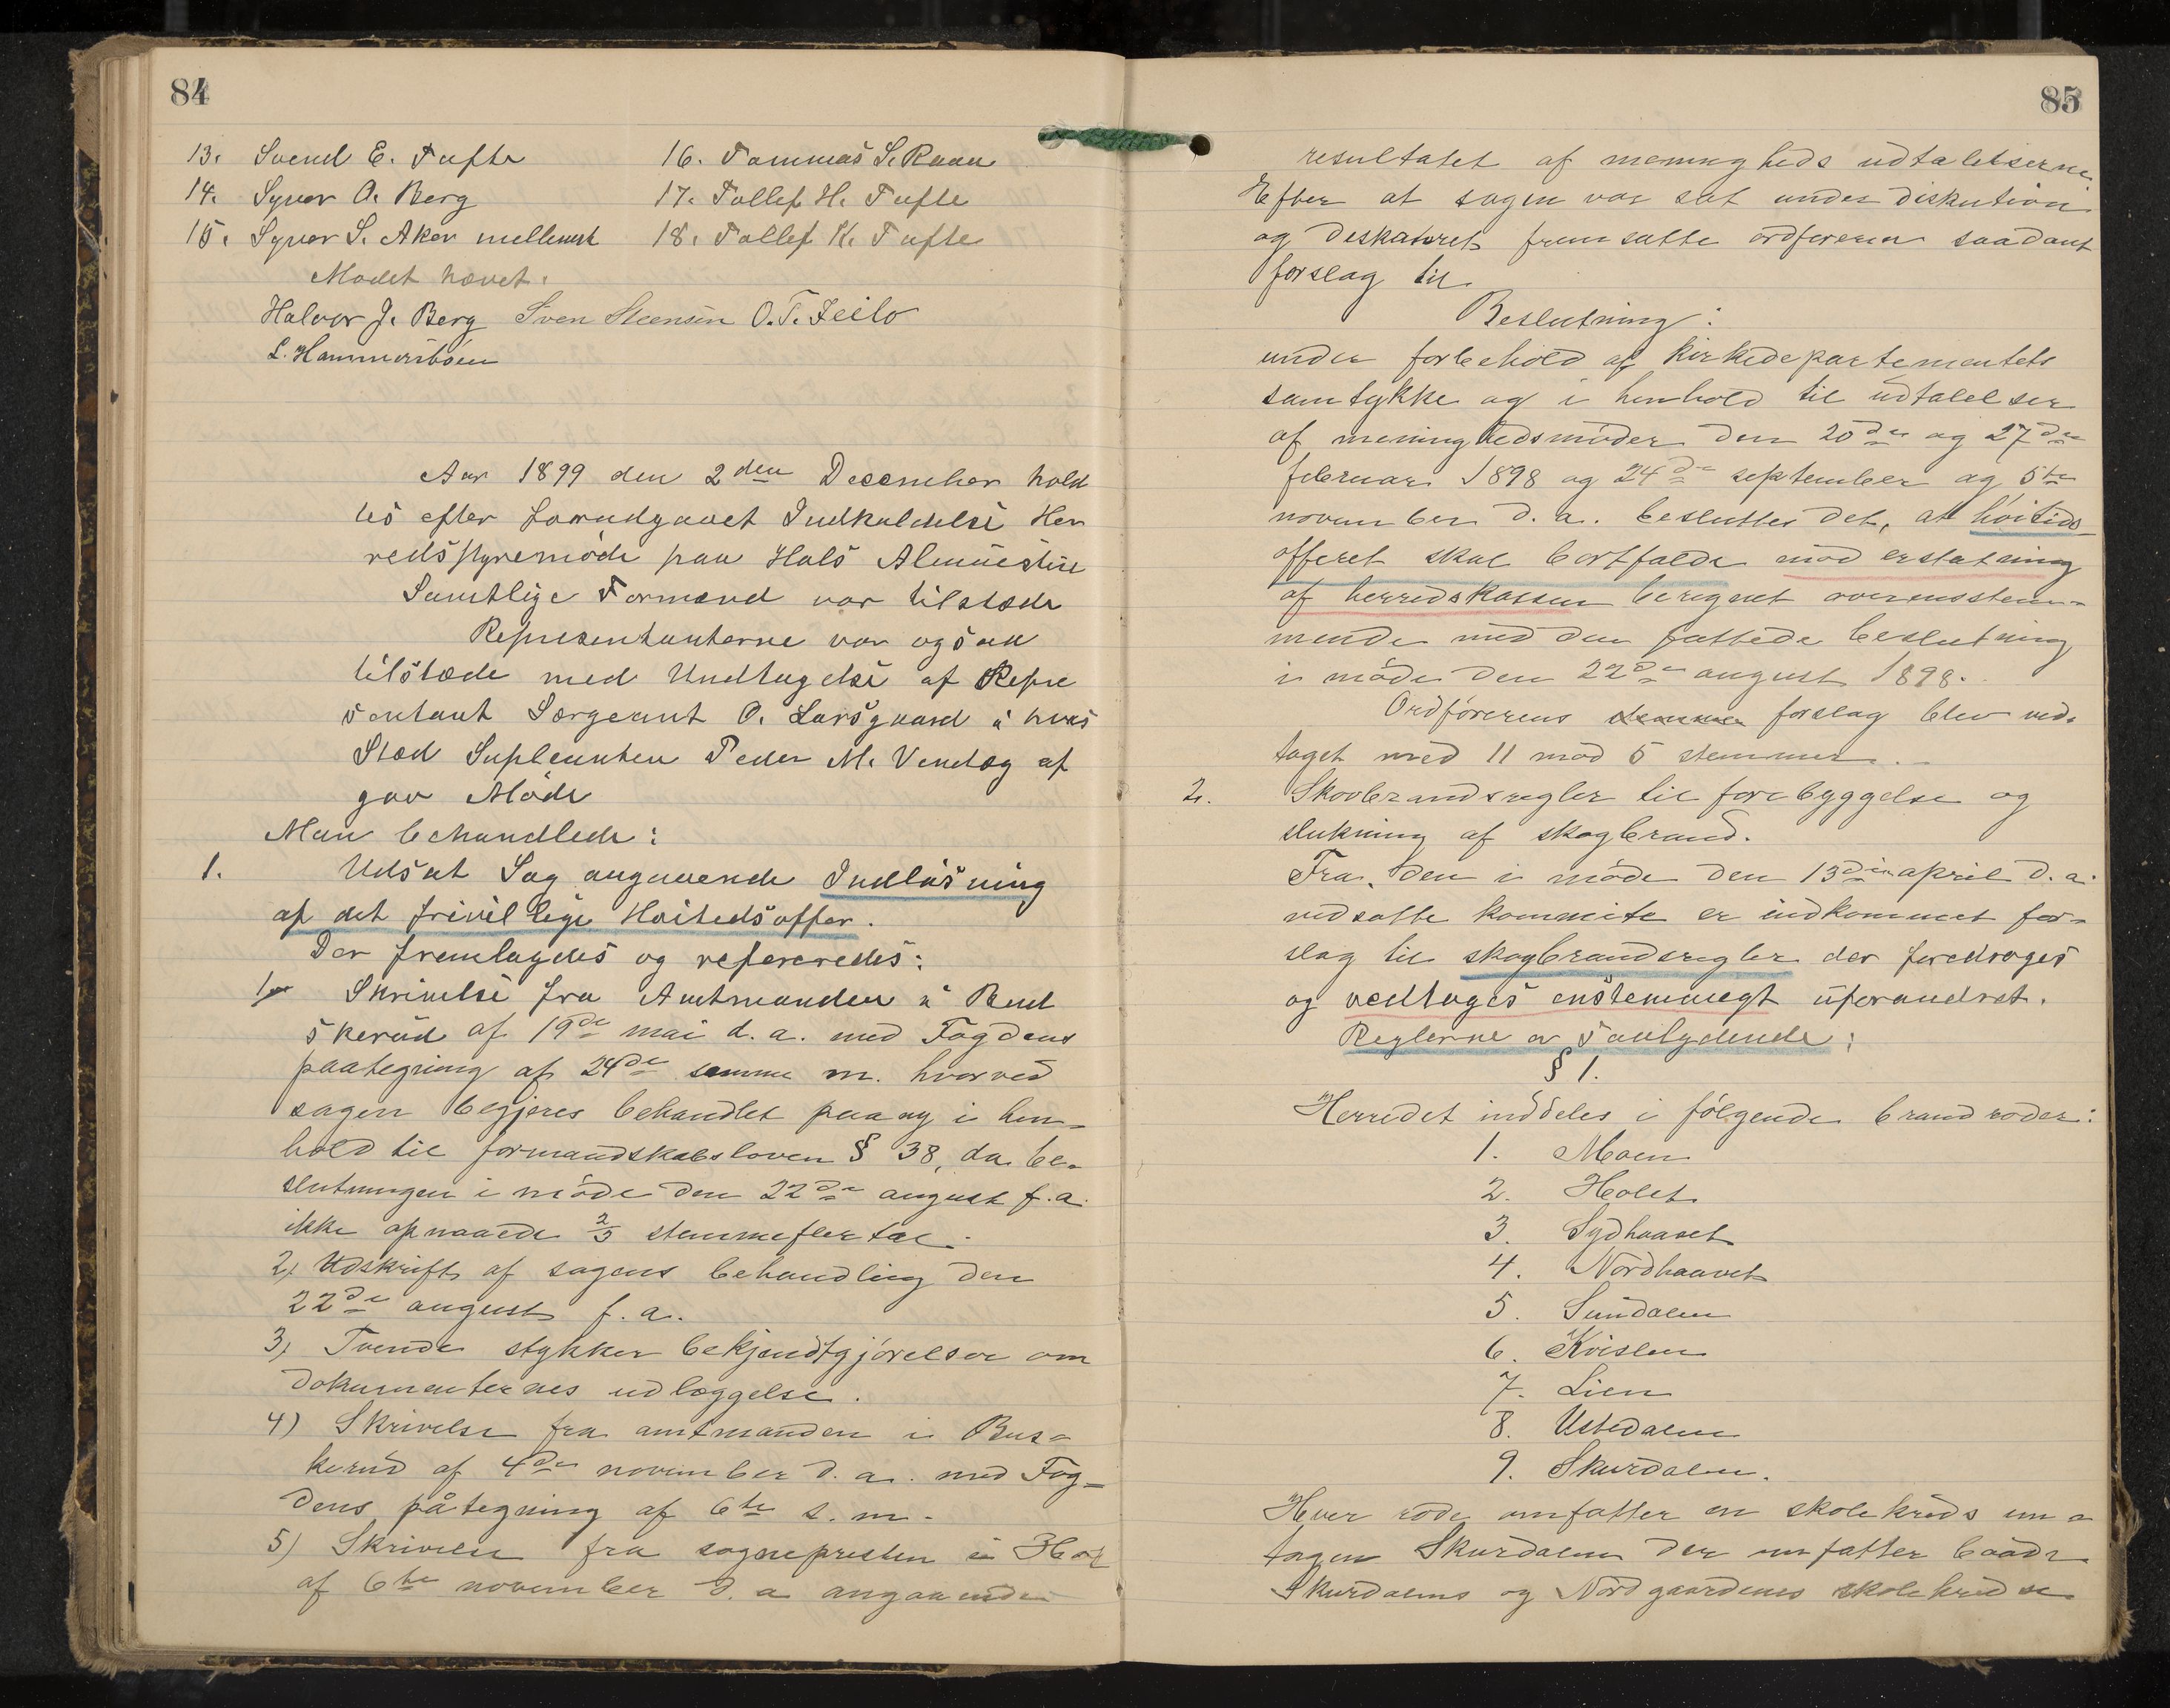 84
13. Svend E. Tufte
14. Syver O. Berg
15. Syver S. Aker mellemst
16. Tommas S. Raan
17. Tollef H. Tufte
18. Tollef K. Tufte
Mødet hævet.
Halvor J. Berg Sven Steensen O. T. Geilo
L. Hammersbøen
Aar 1899 den 2den December hold
tes efter forudgaaet Indkaldelse Her
redsstyremøde paa Hols Almuestue
Samtlige Formænd var tilstede
Representanterne var ogsaa
tilstæde med Undtagelse af Repre
sentant Sergeant O. Larsgaard i hvis
Stæd Supleanten Peder M. Vendog af
gav Møde
Man behandlede:
1. Udsat Sag angaaende Indløsning
af det frivillige Høitedsoffer.
Der fremlagdes og refereredes:
1) Skrivelse fra Amtmanden i Bud
skerud af 19de mai d. a. med Fogdens
paategning af 24de samme m. hvorved
sagen begjeres behandlet paany i hen-
hold til formandskabsloven § 38, da be-
slutningen i møde den 22de august f. a.
ikke opnaaede 2/3 stemmeflertal.
2) Udskrift af sagens behandling den
22de august f. a.
3) Tvende stykker bekjendtgjørelser om
dokumenternes udlæggelse.
4) Skrivelse fra amtmanden i Bus-
kerud af 4de november d. a. med Fog-
dens påtegning af 6te s. m.
5) Skrivelse fra sognepresten i Hol
af 6te november d. a angaaende
85
resultatet af menigheds udtalelserne.
Efter at sagen var sat under diskution
og deskateret fremsatte ordføreren saadant
forslag til
Beslutning:
under forbehold af kirkedepartementets
samtykke og i henhold til udtalelser
af menighedsmøder den 20de og 27de
februar 1898 og 24de september og 5te
november d. a. besluttes det, at høitids-
offeret skal bortfalde mod erstatning
af herredskassen beregnet overensstem-
mende med den fattede beslutning
i møde den 22de august 1898.
Ordførerens forslag blev ved-
taget med 11 mod 5 stemmer.
2. Skovbrandsregler til forebyggelse og
slukning af skogbrand.
Fra den i møde den 13de april d. a.
nedsatte kommite er indkommet for-
slag til skogbrandsregler der foredroges
og vedtoges enstemmegt uforandret.
Reglerne er saalydende:
§ 1.
Herredet inddeles i følgende brandroder:
1. Moen
2. Holet
3. Sydhaavet
4. Nordhaavet
5. Sundalen
6. Kvislen
7. Lien
8. Ustedalen
9. Skurdalen.
Hver rode omfatter en skolekreds un-
tagen Skurdalen der omfatter baade
Skurdalens og Nordgaardenes skolekredse